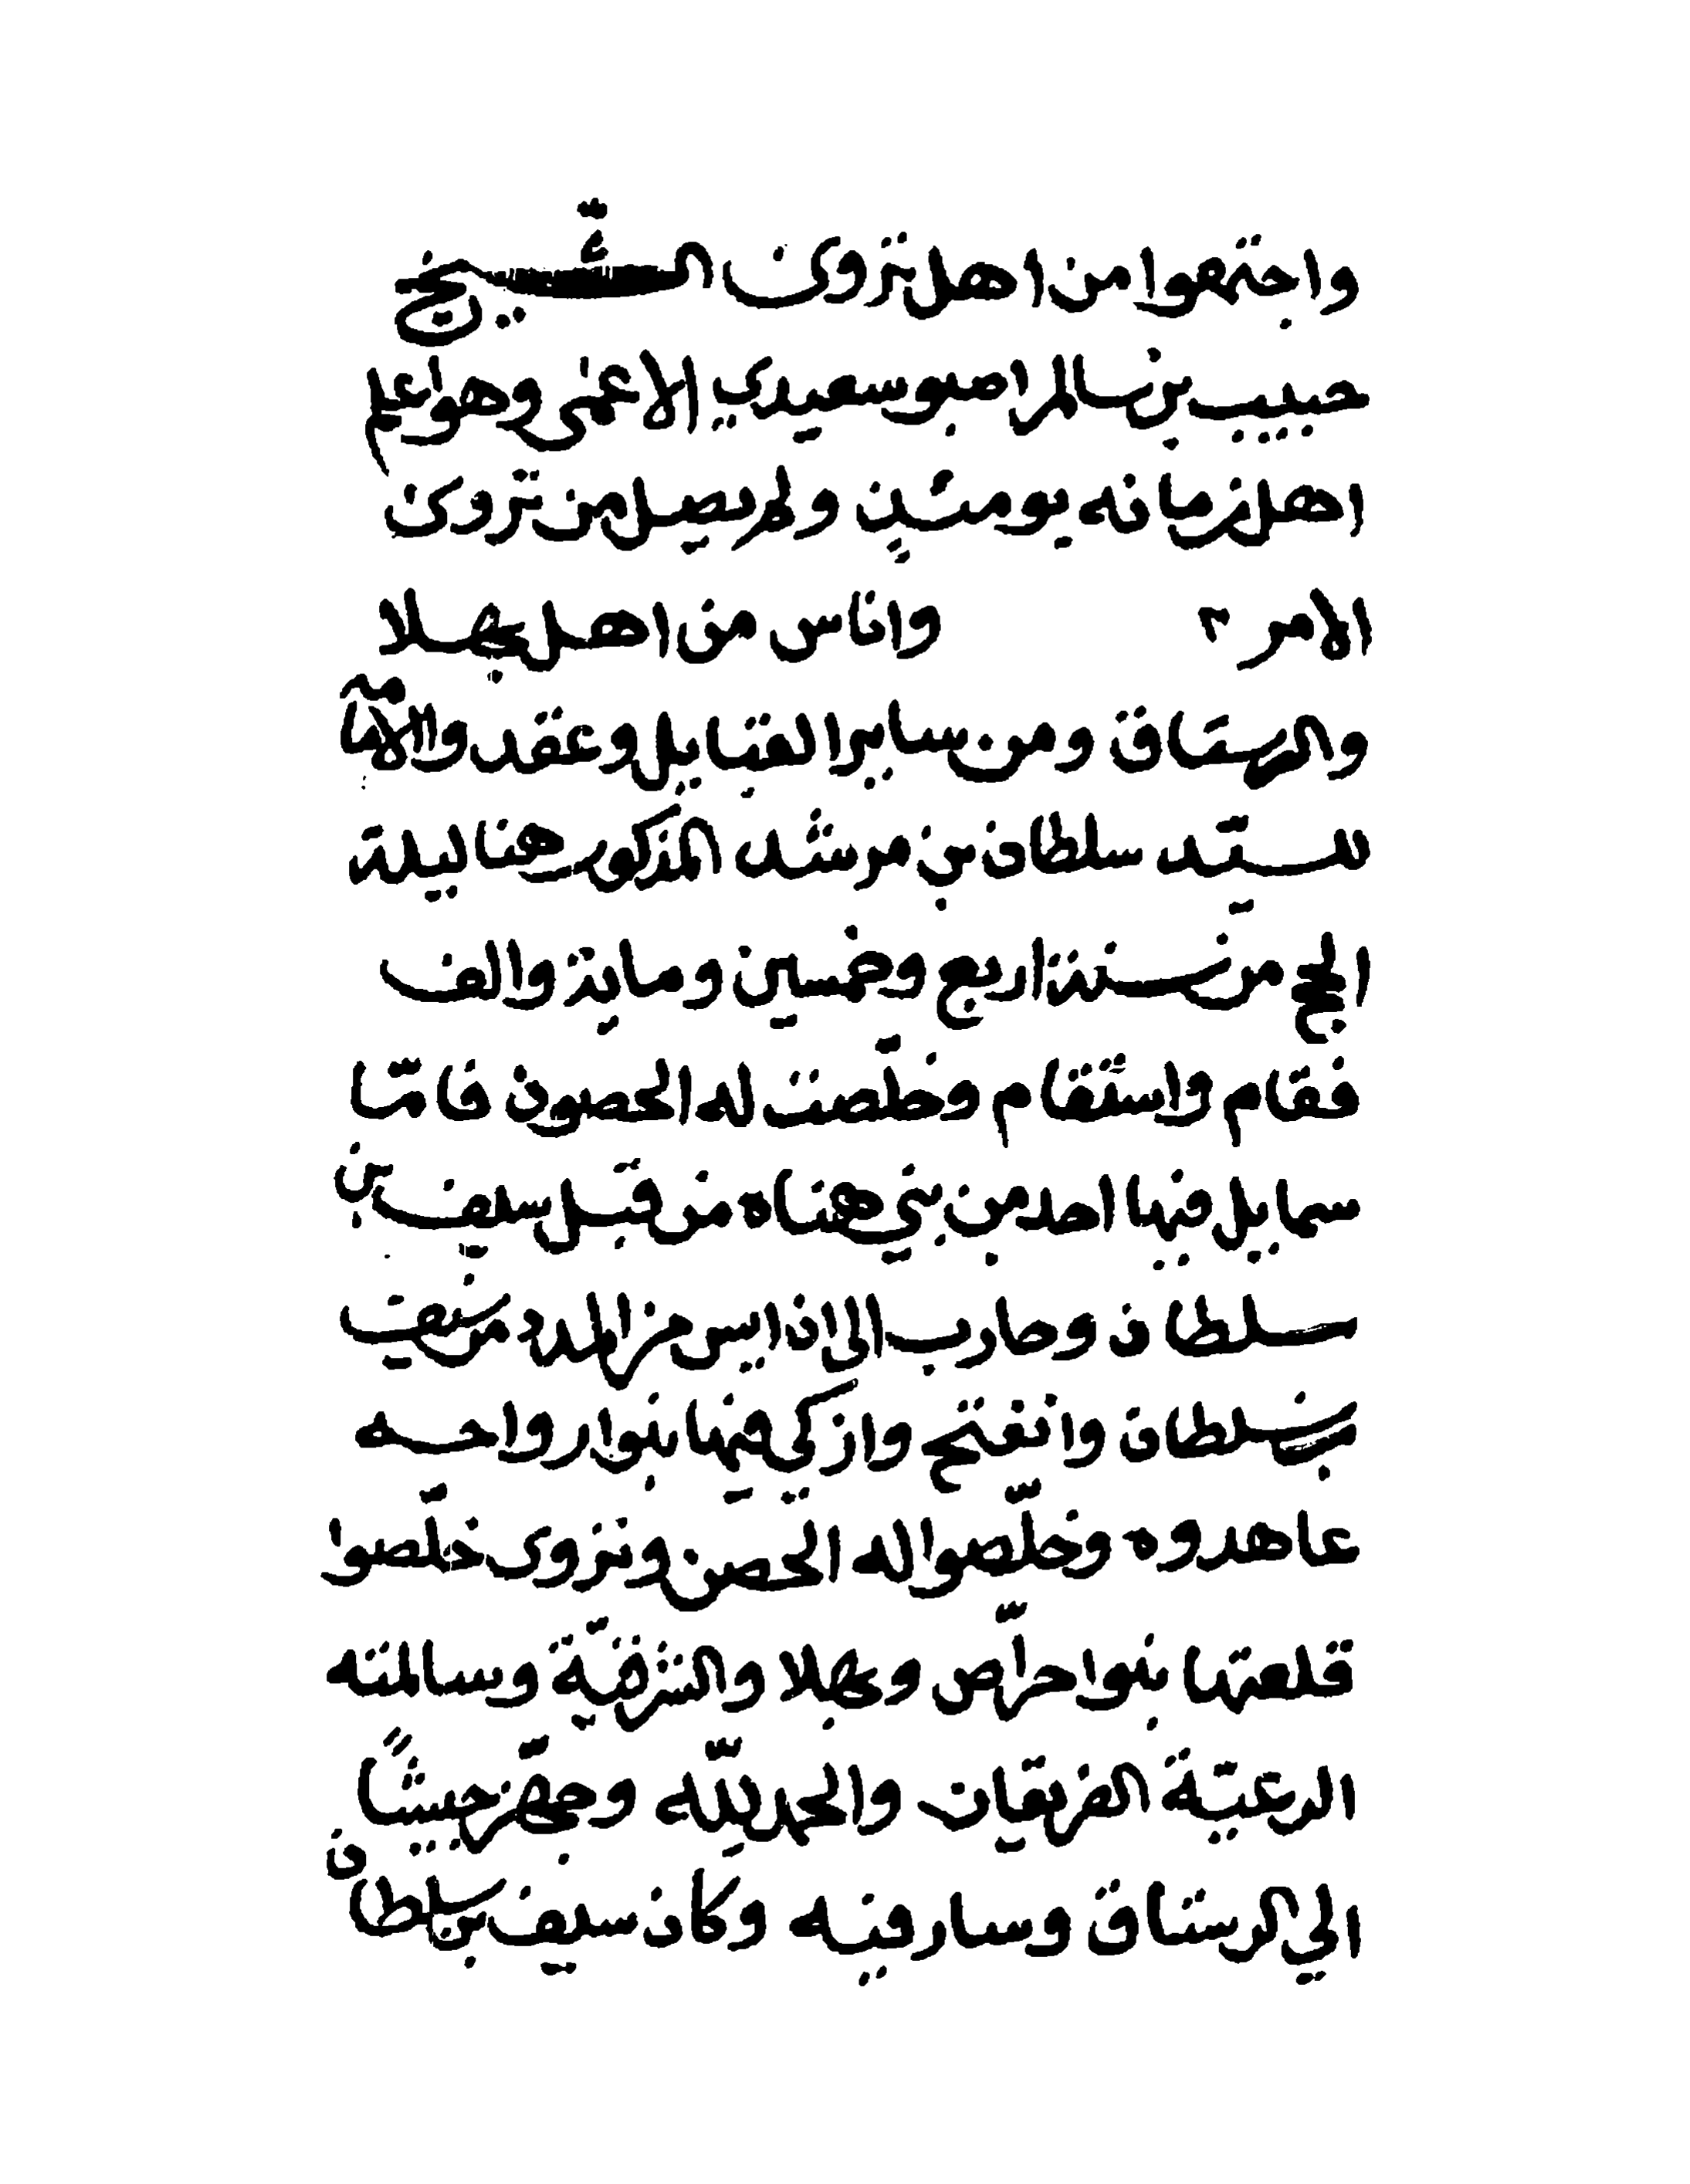 واجتمعوا من اهل نزوى الشّيخ
حبيب بن سالم امبوسعيدي الاعمى وهو اعلم
اهل زمانه يومئذٍ ولم يصل من نزوى
الامر واناس من اهل بهلا
والرستاق ومن ساير القبايل وعقدوا الامامة
للسيّد سلطان بن مرشد المذكور هنا ليلة
الحج من سنة اربع وخمسين وماية والف
فقام واستقام وخلّصت له الحصون فامّا
سمايل فيها احد من بني هناه من قبل سيف بن
سلطان وحارب الى ان ايس من المدد من سيف
بن سلطان وانفتح وازكي فيها بنوا رواحه
عاهدوه وخلّصوا له الحصن ونزوى خلّصوا
قلعتها بنوا حرّاص وبهلا والشرقيّة وسالمته
الرعيّة الفريقان والحمد للّه وجهّز جيشًا
الي الرستاق وسار فيه وكان سيف بن سلطان